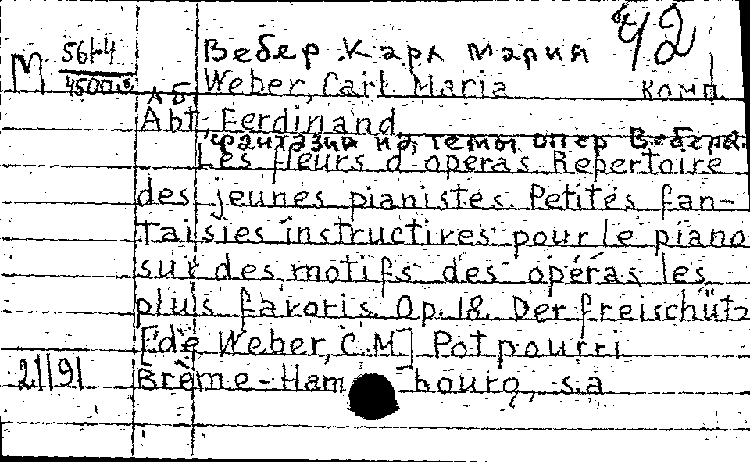 42
Вебер Карл Мария
M 561-4
Weber, Carl Maria комп.
Аб
Abt, Ferdinand
фантазии на темы опер Вебера
Les fleurs d'opéras. Répertoire
des jeunes pianistes. Petites fan-
taisies instructives pour le piano
sur des motifs des opéras les
plus favoris. Op. 18. Der Freischütz
[de Weber, C.M.] Potpourri
21/91 Brème-Ham bourg, s.a